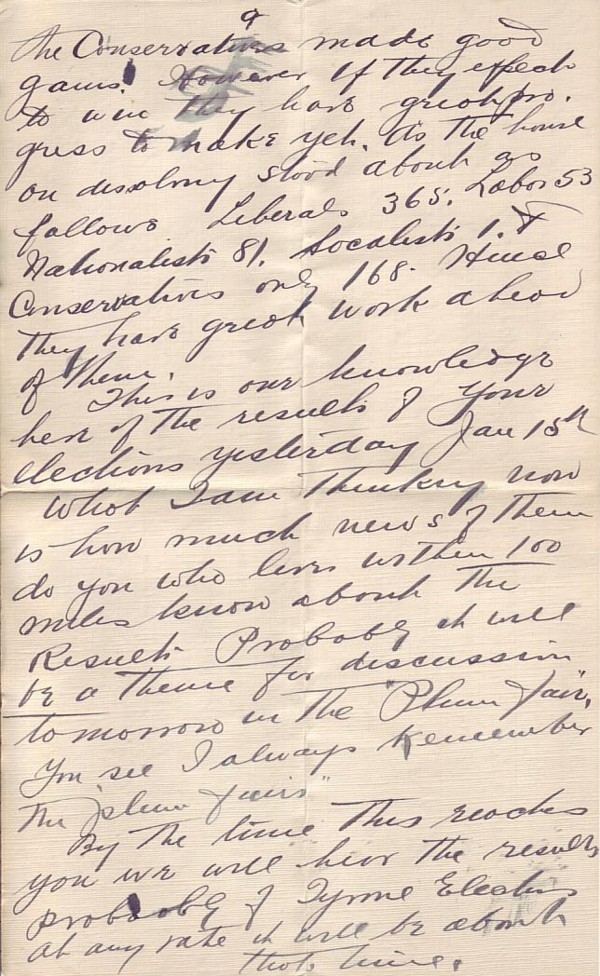 9
The Conservatives made good
gains. However if they expect
to win they have great pro.
gress to make yet. As the house
on dissolvng stood about as
follows Liberals 365. Labor 53
Nationalists 81. Socalists 1. &
Conservatives only 168. Hence
they have great work ahead
of them.
This is our knowledge
here of the results of your
elections yesterday Jan 15th
What I am thinking now
is how much news of them
do you who lives within 100
miles know about the
Results Probably it will
be a theme for discussion
tomorrow in the "Plum fair,
You see I always Remember
the "plum fairs"
By the time this reaches
you we will hear the results
probably of Tyrone Elections
at any rate it will be about
that time.